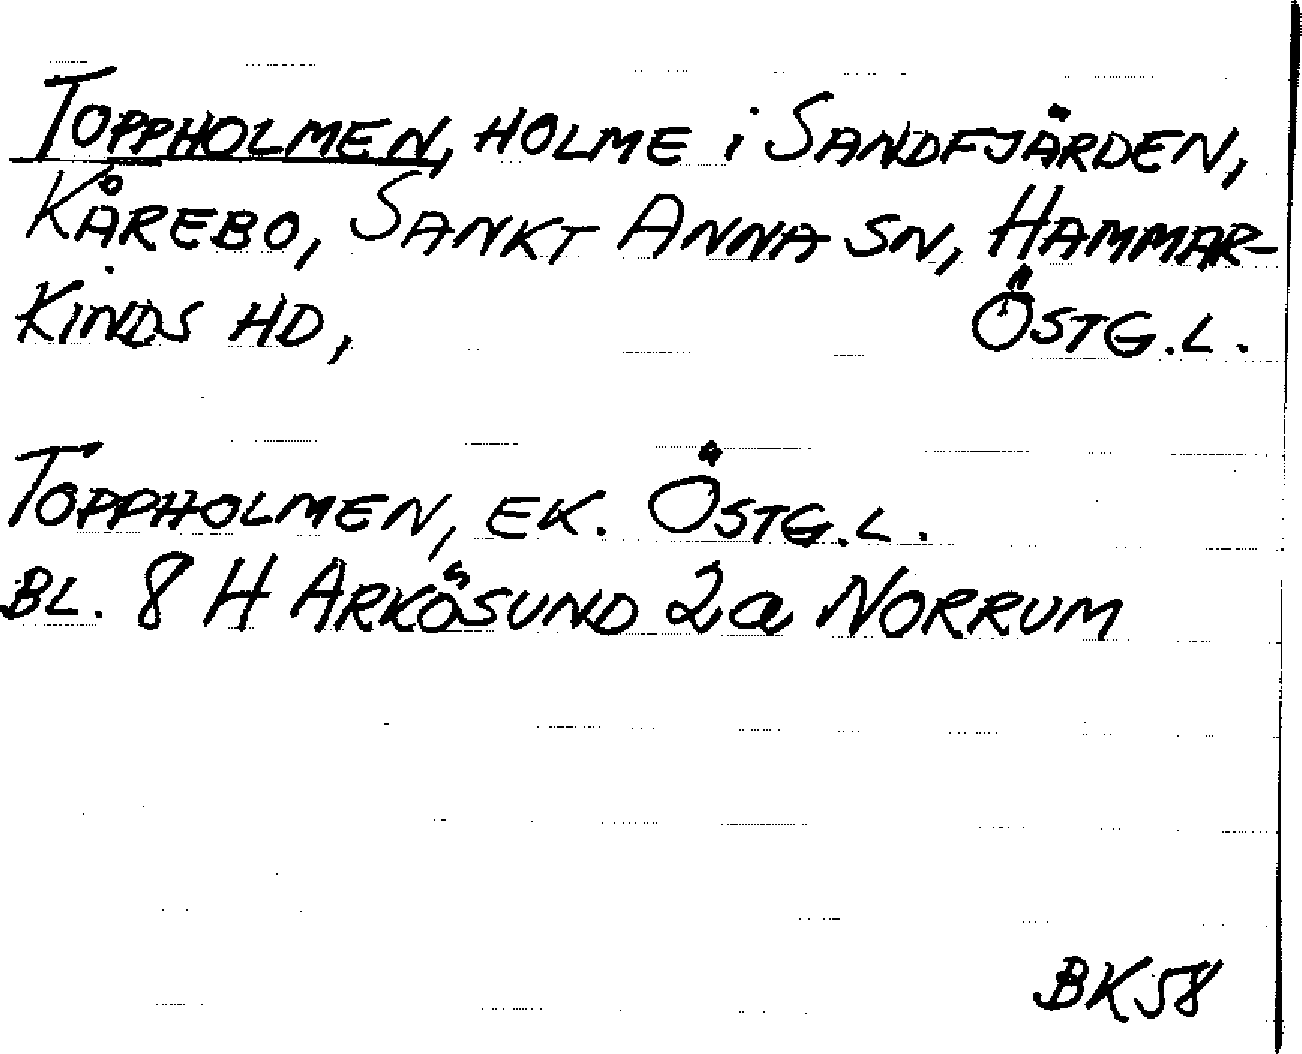 TOPPHOLMEN, HOLME i SANDFJÄRDEN,
KÅREBO, SANKT ANNA SN, HAMMAR-
KINDS HD, ÖSTG.L.
TOPPHOLMEN, EK. ÖSTG.L.
BL. 8 H ARKÖSUND 2a NORRUM
BK58